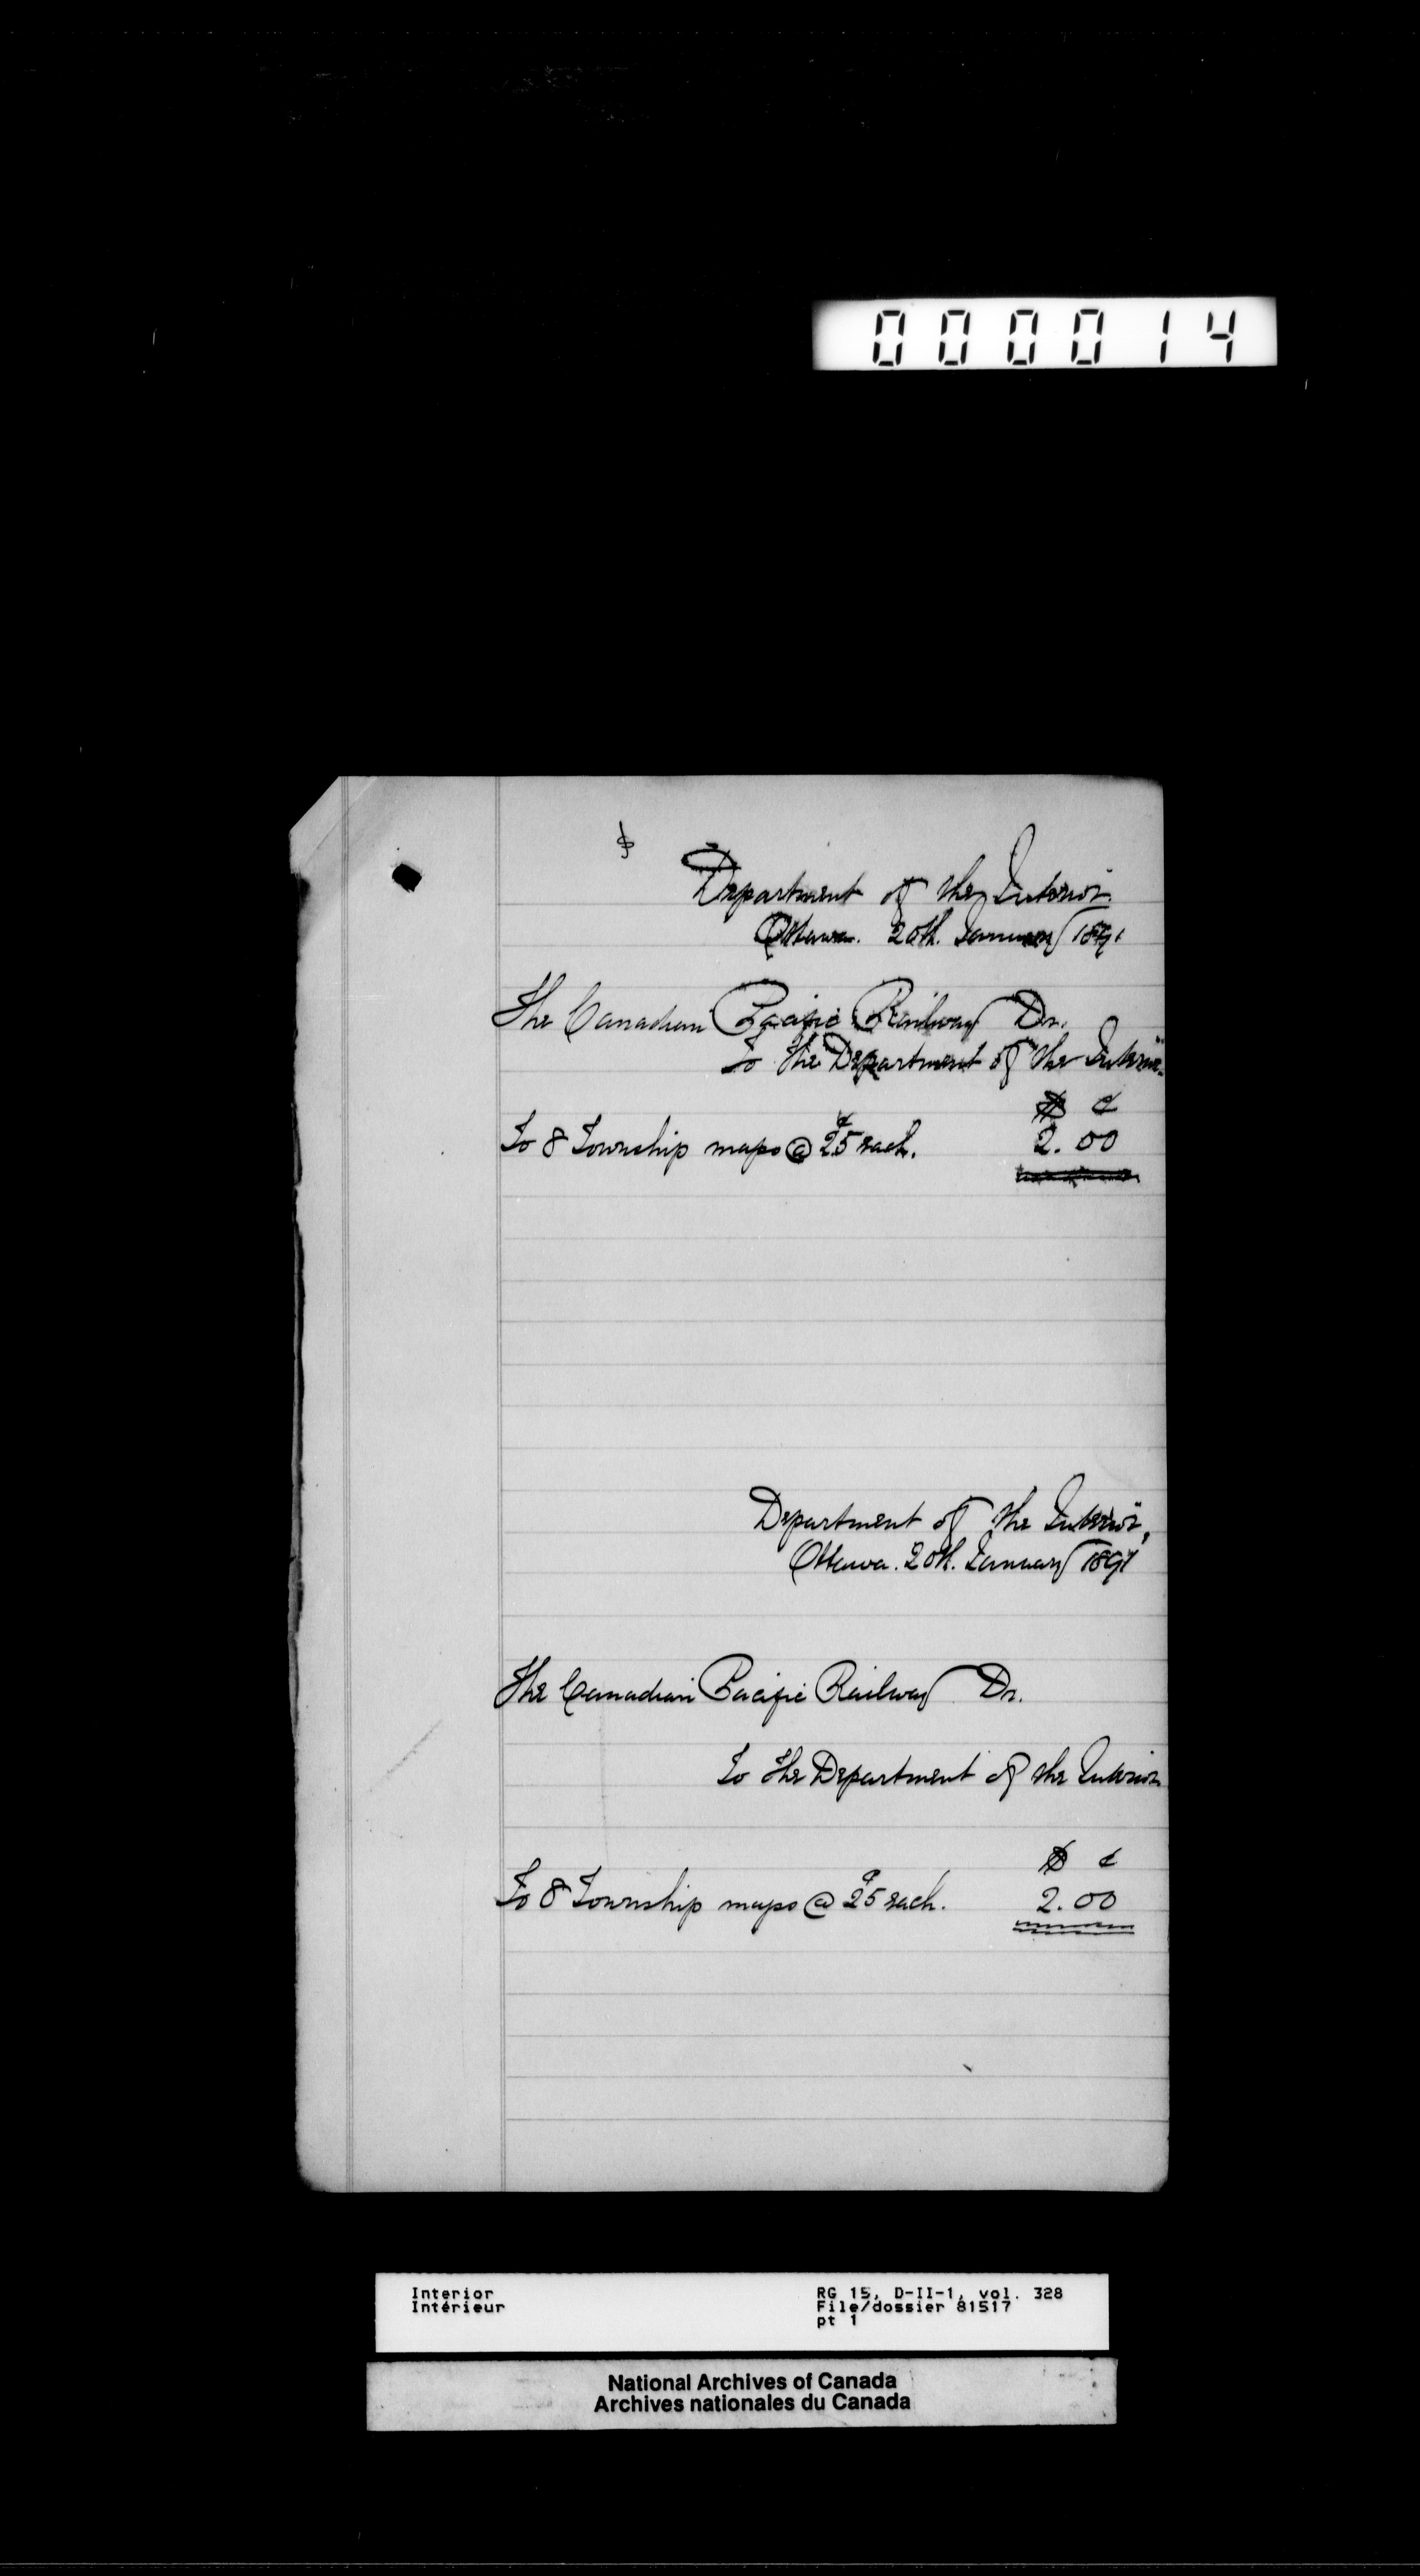 000014
Department of the Interior.
Ottawa. 20th. January 1891
The Canadian Pacific Railway Dr.
To the Department of the Interior.
$ c
To 8 Township maps @ 25c each. 2.00
Department of the Interior,
Ottawa. 20th. January 1891
The Canadian Pacific Railway Dr.
To the Department of the Interior
$ c
To 8 Township maps @ 25c each. 2.00
Interior RG 15, D-II-1, vol. 328
Intérieur File/dossier 81517
pt 1
National Archives of Canada
Archives nationales du Canada